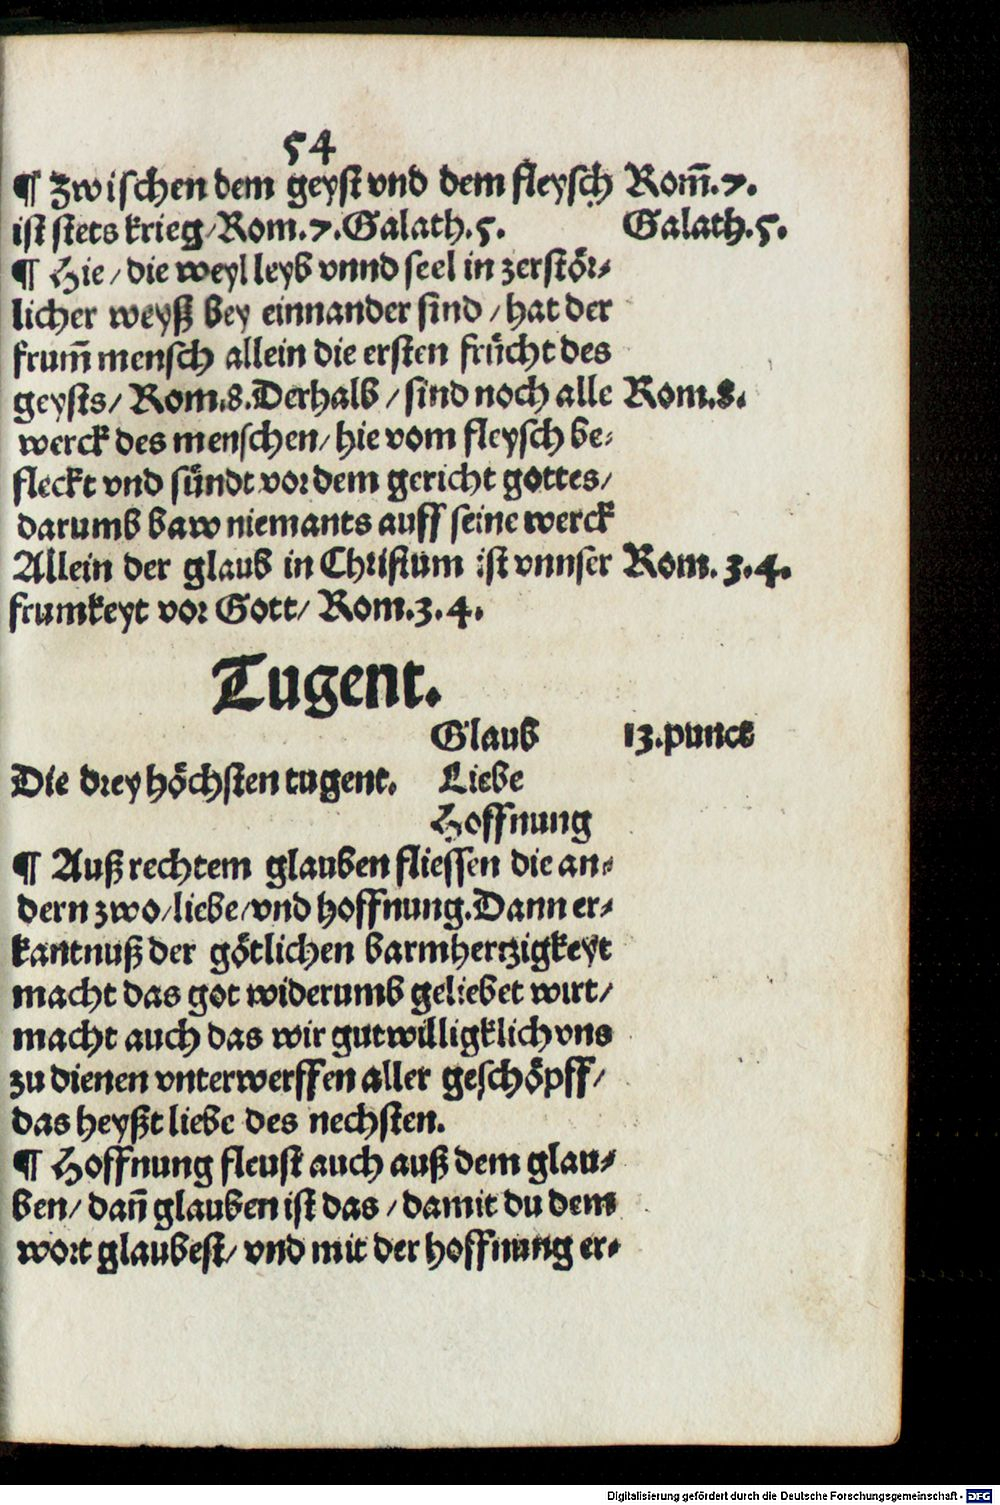 54
¶ Zwischen dem geyst vnd dem fleysch Rom̄.7.
ist stets krieg/Rom.7.Galath.5. Galath.5.
¶ Hie/die weyl leyb vnnd seel in zerstör-
licher weyß bey einnander sind/hat der
frum̄ mensch allein die ersten frücht des
geysts/Rom.8.Derhalb/sind noch alle Rom.8.
werck des menschen/hie vom fleysch be-
fleckt vnd sündt vor dem gericht gottes/
darumb baw niemants auff seine werck
Allein der glaub in Christum ist vnnser Rom.3.4.
frumkeyt vor Gott/Rom.3.4.
Tugent.
Glaub 13.punct
Die drey höchsten tugent. Liebe
Hoffnung
¶ Auß rechtem glauben fliessen die an-
dern zwo/liebe/vnd hoffnung.Dann er-
kantnuß der götlichen barmhertzigkeyt
macht das got widerumb geliebet wirt/
macht auch das wir gutwilligklich vns
zu dienen vnterwerffen aller geschöpff/
das heyßt liebe des nechsten.
¶ Hoffnung fleust auch auß dem glau-
ben/dañ glauben ist das/damit du dem
wort glaubest/vnd mit der hoffnung er-
Digitalisierung gefördert durch die Deutsche Forschungsgemeinschaft - DFG